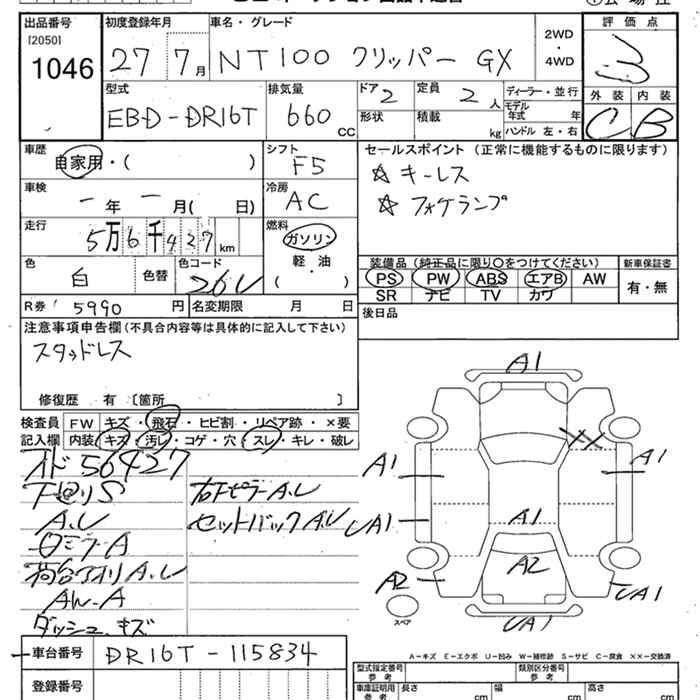 出品番号
[2050]
1046
初度登録年月
27 7月
車名・グレード
NT100 クリッパー GX
2WD
・
4WD
評価点
3
型式
EBD-DR16T
排気量
660 CC
ドア 2
定員 2 人
形状
積載 kg
ディーラー・並行
モデル年式 年
ハンドル 左・右
外装 内装
C B
車歴
自家用・( )
シフト
F5
車検
ー年ー月( 日)
冷房
AC
走行
5万6千427km
燃料
ガソリン
軽・油
・
( )
色
白
色替
色コード
26U
R券 5990円
名変期限 月 日
セールスポイント(正常に機能するものに限ります)
☆ キーレス
☆ フォグランプ
装備品(純正品に限り○をつけてください)
PS PW ABS エアB AW
SR ナビ TV カワ
新車保証書
有・無
後日品
注意事項申告欄(不具合内容等は具体的に記入して下さい)
スタッドレス
修復歴 有〔箇所 〕
検査員 FW キズ・飛石・ヒビ割・リペア跡・×要
記入欄 内装 キズ・汚レ・コゲ・穴・スレ・キレ・破レ
オド56427
下廻りS
A.U
ロミラーA
荷台アオリA.U
AW-A
ダッシュキズ
右ドピラーA.U
セットバックA.U
A1
XX
A1
A1
UA1
A1
A2
A2
UA1
UA1
スペア
A-キズ E-エクボ U-凹み W-補修跡 S-サビ C-腐食 XX-交換済
車台番号 DR16T-115834
登録番号
型式指定番号
参考
類別区分番号
参考
車庫証明用
参考
長さ cm
幅 cm
高さ cm